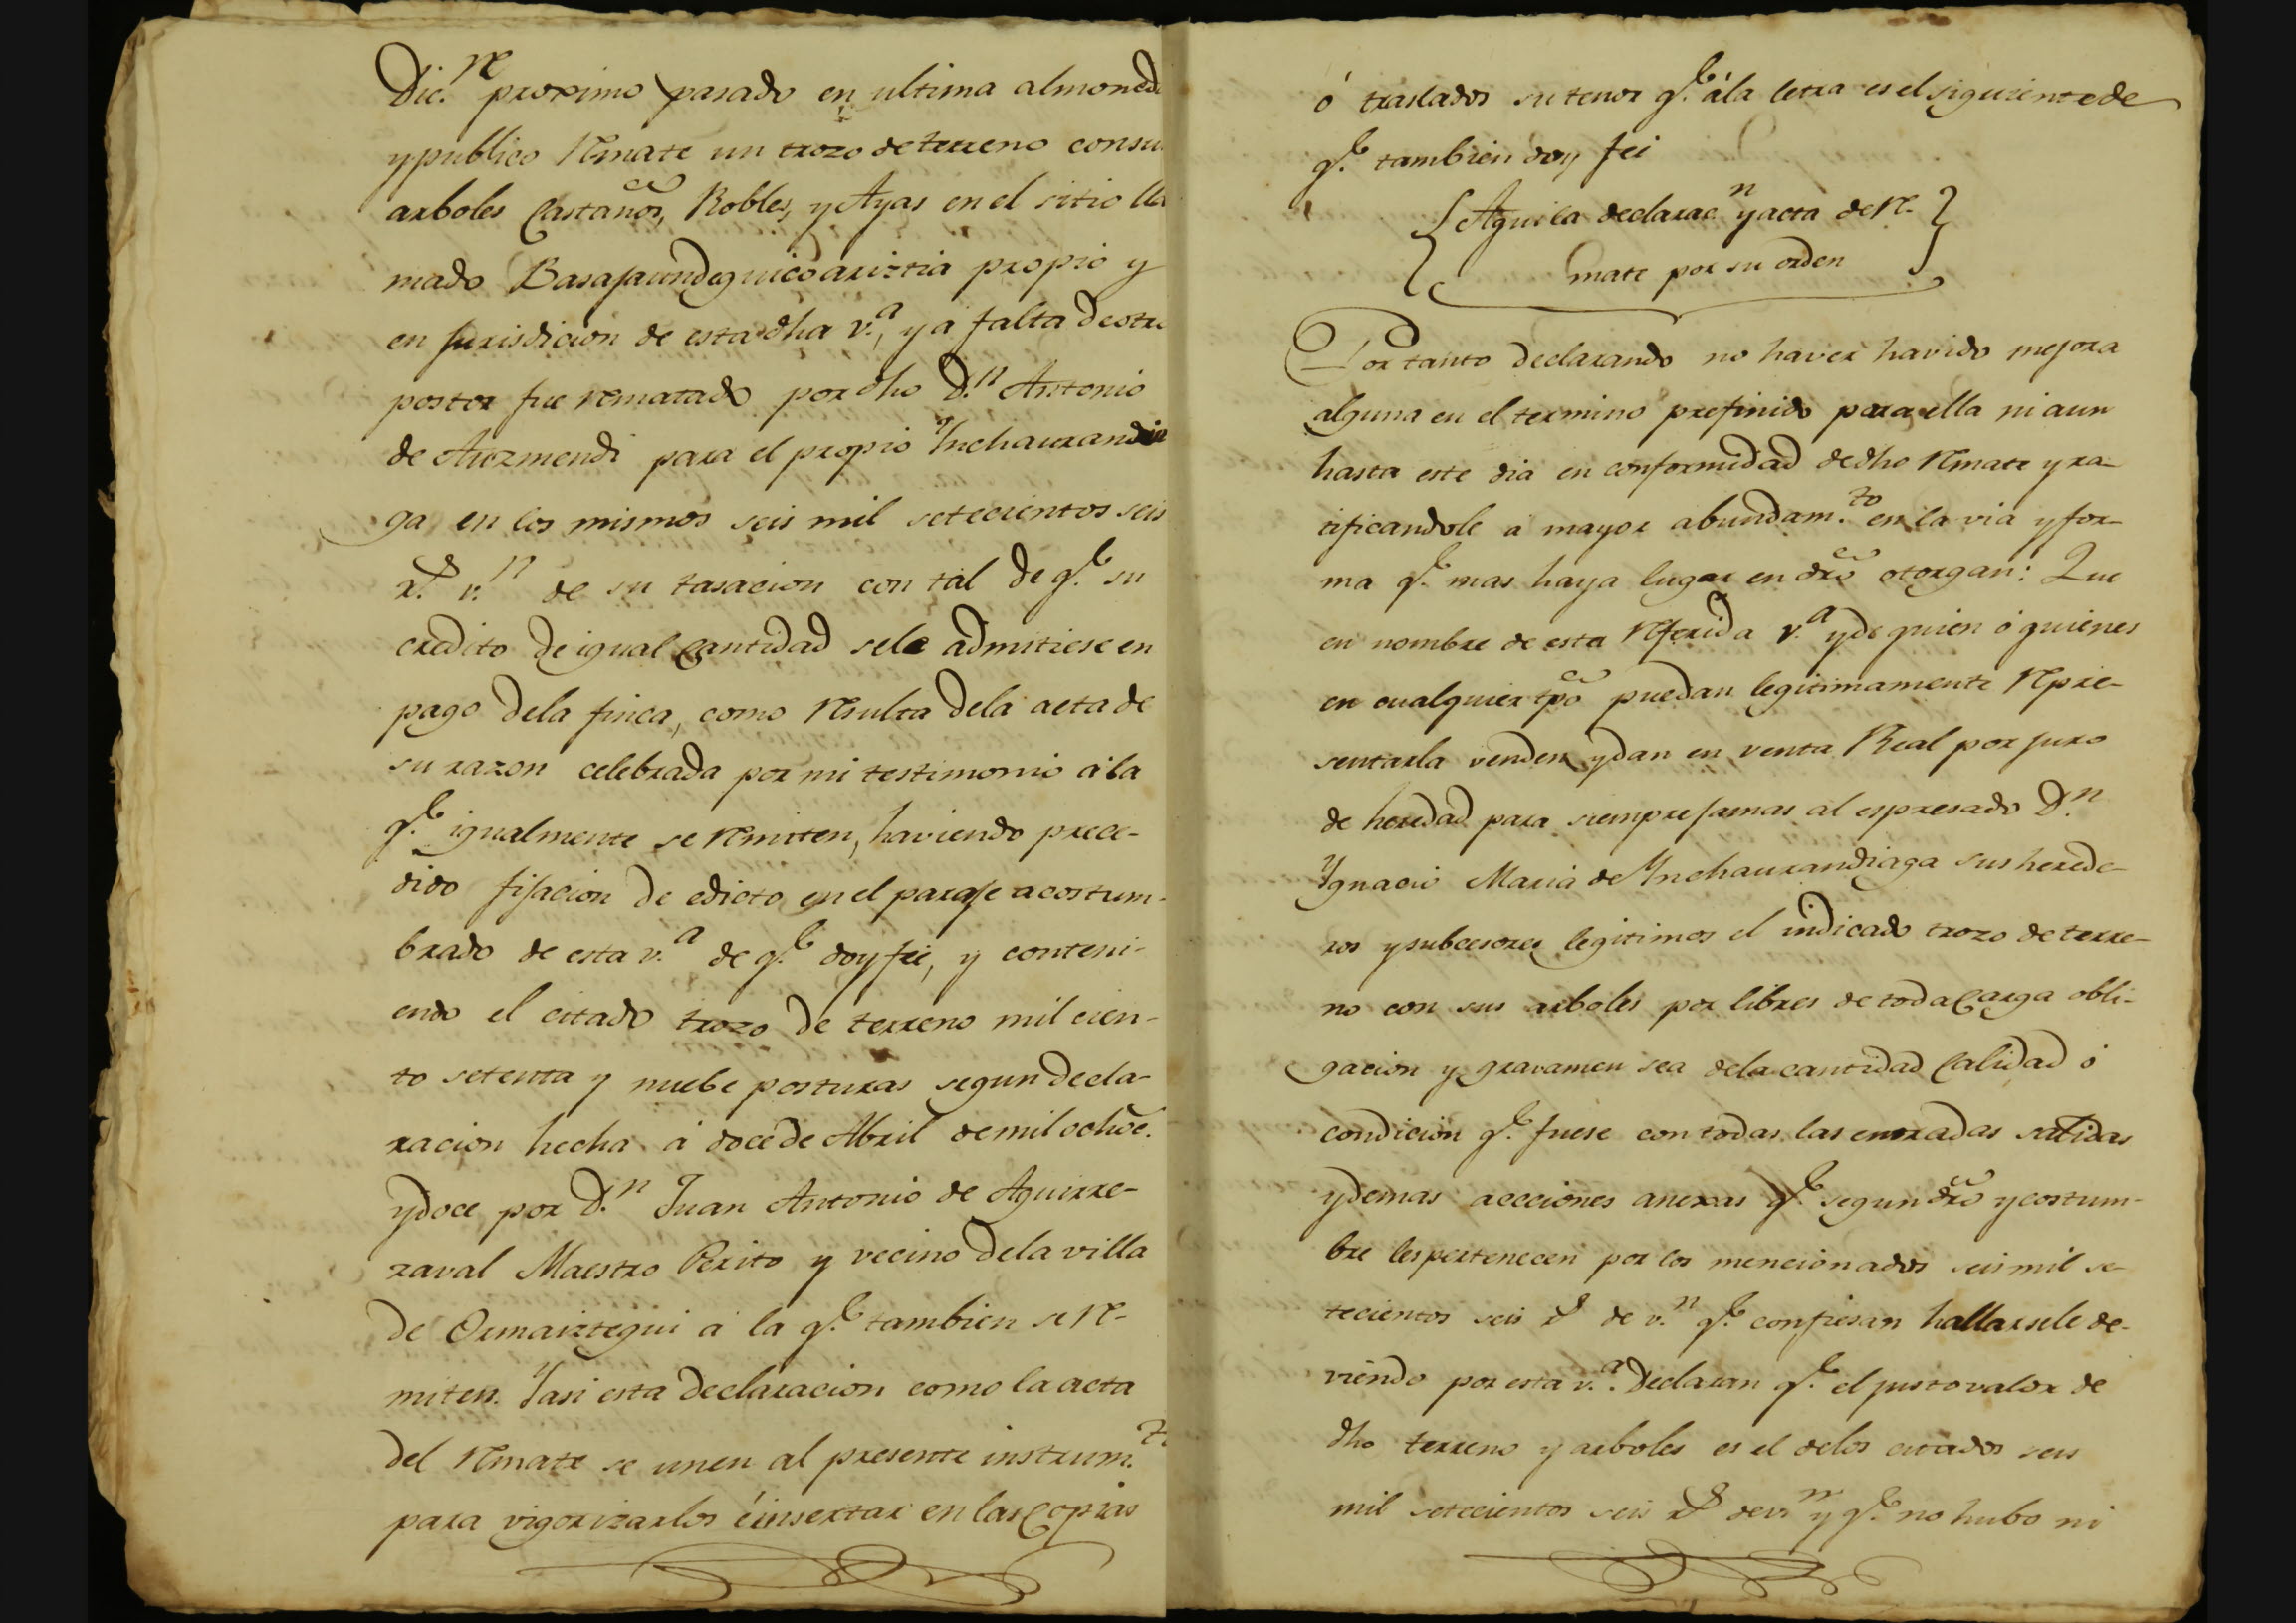 Dic.re proximo pasado en ultima almoned
y publico Remate un trozo de terreno consu
arboles Castaños, Robles, y Ayas en el sitio lla
mado Basajaundeguicoariztia propio y
en Jurisdicion de esta dha v.a, y a falta de otro
postor fue rematado por dho D.n Antonio
de Auzmendi para el propio Ynchaurandia
ga en los mismos seis mil setecientos seis
r.s v.n de su tasacion con tal de q.e su
credito de igual Cantidad sele admitiese en
pago dela finca, como Resulta dela acta de
su razon celebrada por mi testimonio a la
q.e igualmente se Remiten, haviendo prece-
dido fijacion de edicto en el paraje acostum-
brado de esta v.a de q.e doy fei, y conteni-
endo el citado trozo de terreno mil cien-
to setenta y nuebe posturas segun decla-
racion hecha á doce de Abril de mil ochoc.
y doce por D.n Juan Antonio de Aguirre-
zaval Maestro Perito y vecino dela villa
de Ormaiztegui á la q.e tambien se Re-
miten. Y asi esta declaracion como la acta
del Remate se unen al presente instrum.to
para vigorizarlos é insertar en las Copias
ó traslados su tenor q.e á la letra es el siguiente de
q.e tambien doy fei
{Aqui la declarac.n y acta de Re-}
mate por su orden
Por tanto declarando no haver havido mejora
alguna en el termino prefinido para ella ni aun
hasta este dia en conformidad de dho Remate y ra-
tificandole a mayor abundam.to en la via y for-
ma q.e mas haya lugar en dro otorgan: Que
en nombre de esta Referida v.a y de quien ó quienes
en cualquier tpo puedan legitimamente Repre-
sentarla venden y dan en venta Real por juro
de heredad para siempre jamas al espresado D.n
Ygnacio Maria de Ynchaurandiaga sus herede-
ros y subcesores legitimos el indicado trozo de terre-
no con sus arboles por libres de toda Carga obli-
gacion y gravamen sea dela cantidad Calidad ó
condicion q.e fuese con todas las entradas salidas
y demas acciones anexas q.e segun dro y costum-
bre les pertenecen por los mencionados seis mil se-
tecientos seis r.s de v.n q.e confiesan hallarsele de-
viendo por esta v.a. Declaran q.e el justo valor de
dho terreno y arboles es el delos citados seis
mil setecientos seis r.s de v.n y q.e no hubo ni